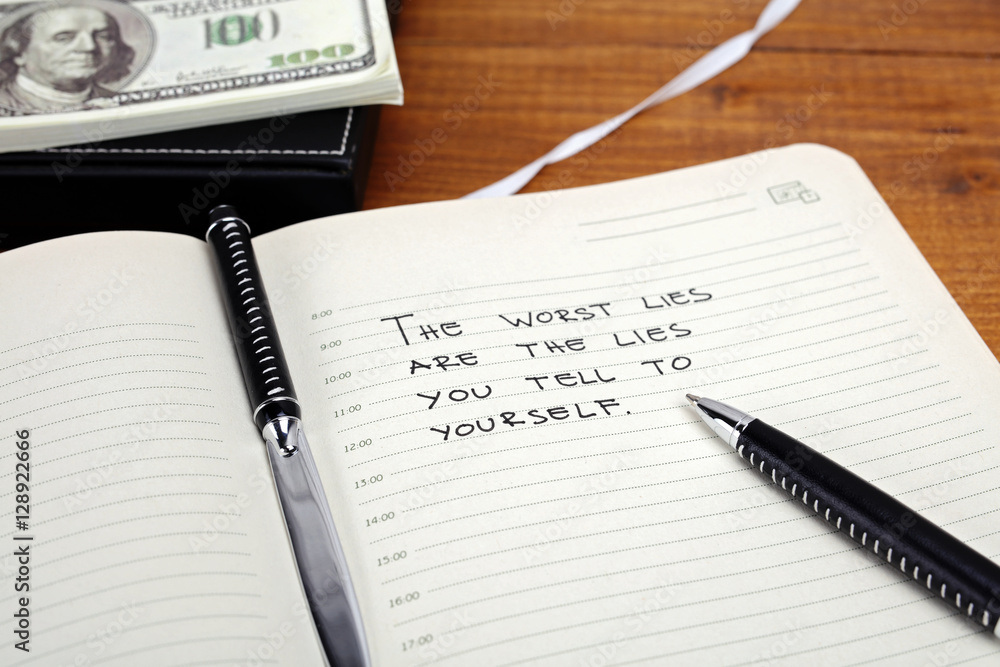 100
100
8:00
9:00
10:00
11:00
12:00
13:00
14:00
15:00
16:00
17:00
The worst lies
are the lies
you tell to
yourself.
Adobe Stock | #128922666